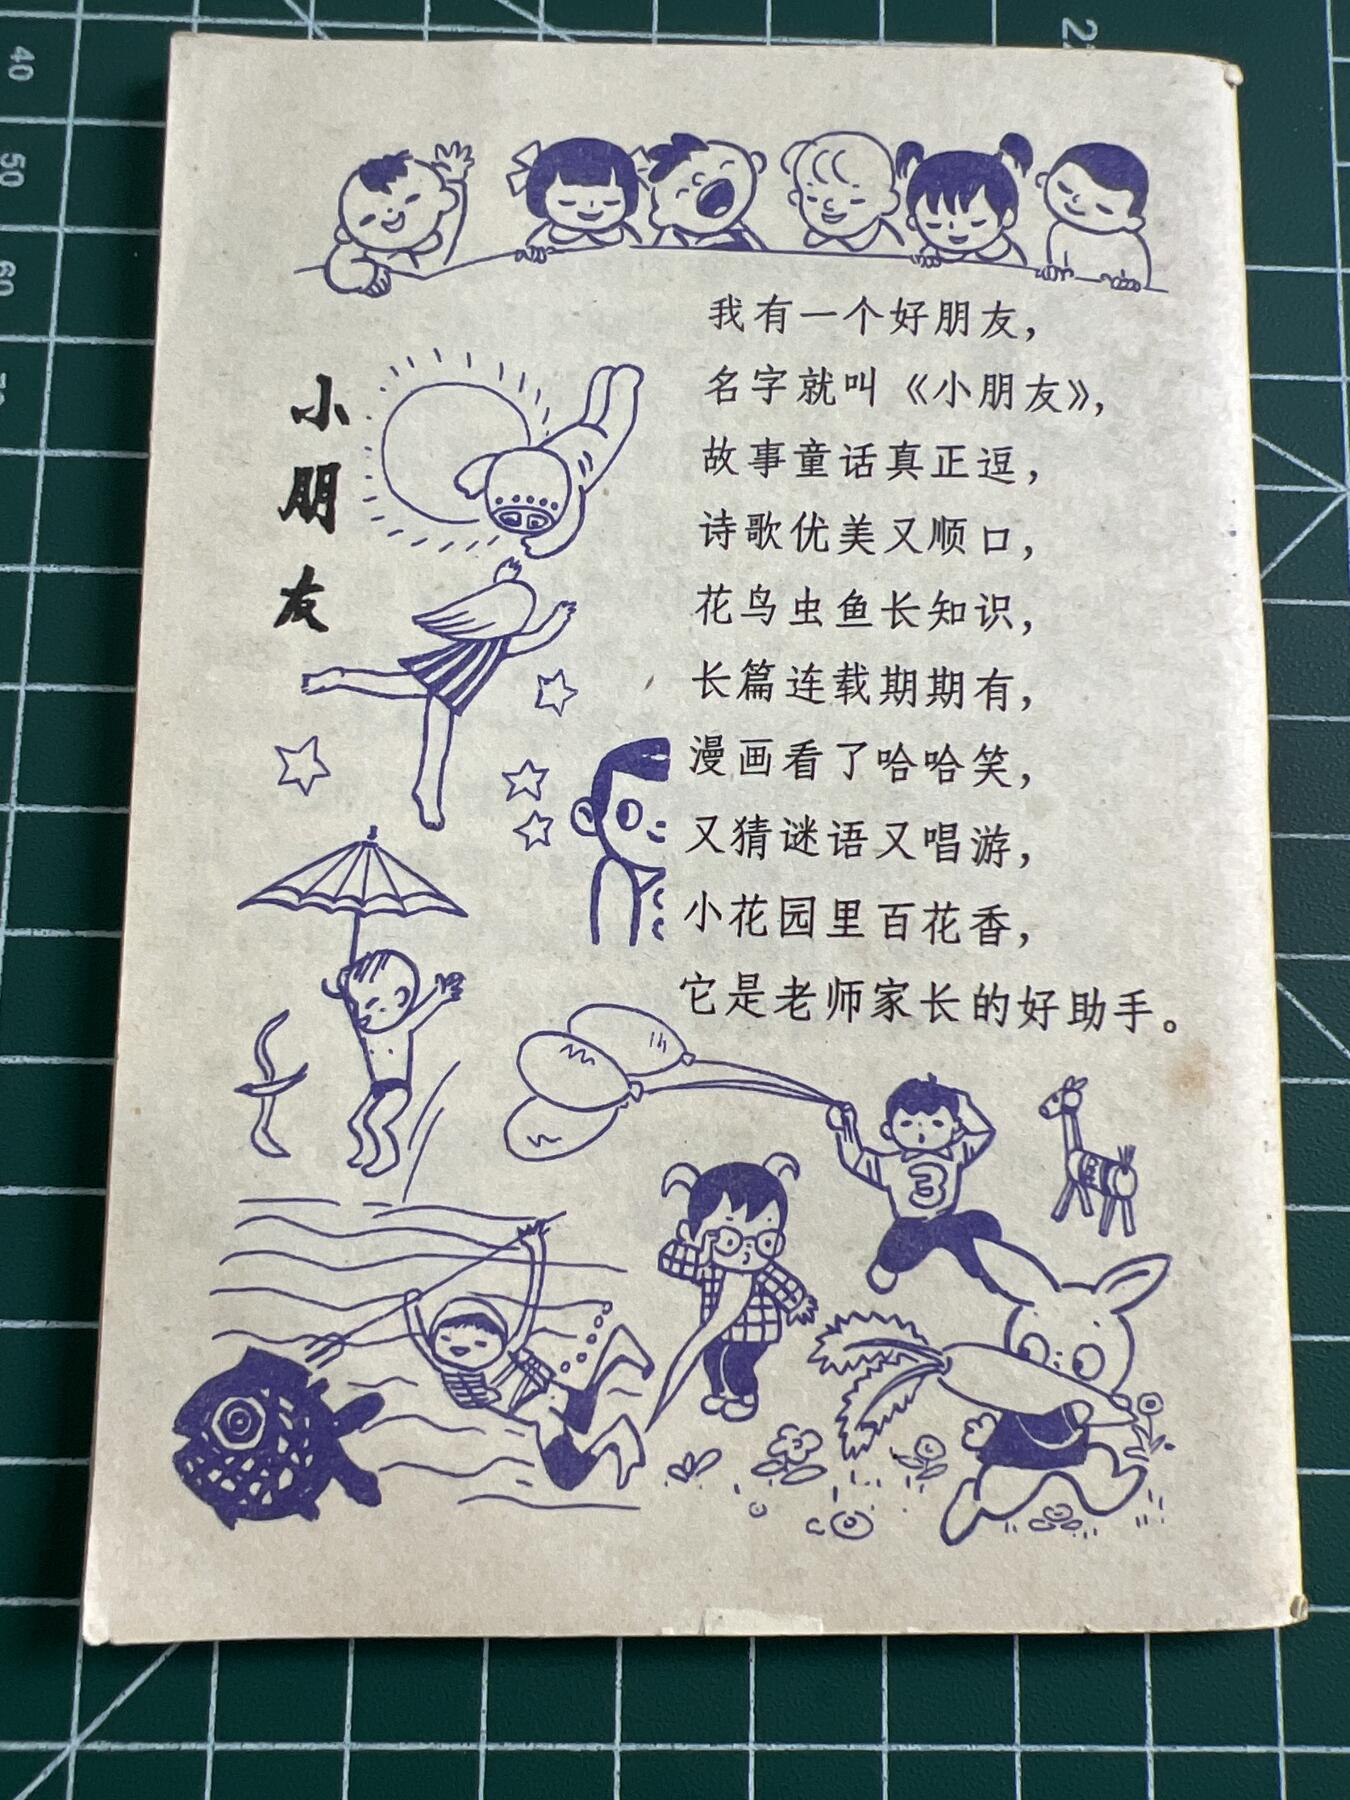 小朋友
我有一个好朋友，
名字就叫《小朋友》，
故事童话真正逗，
诗歌优美又顺口，
花鸟虫鱼长知识，
长篇连载期期有，
漫画看了哈哈笑，
又猜谜语又唱游，
小花园里百花香，
它是老师家长的好助手。
3
40
50
60